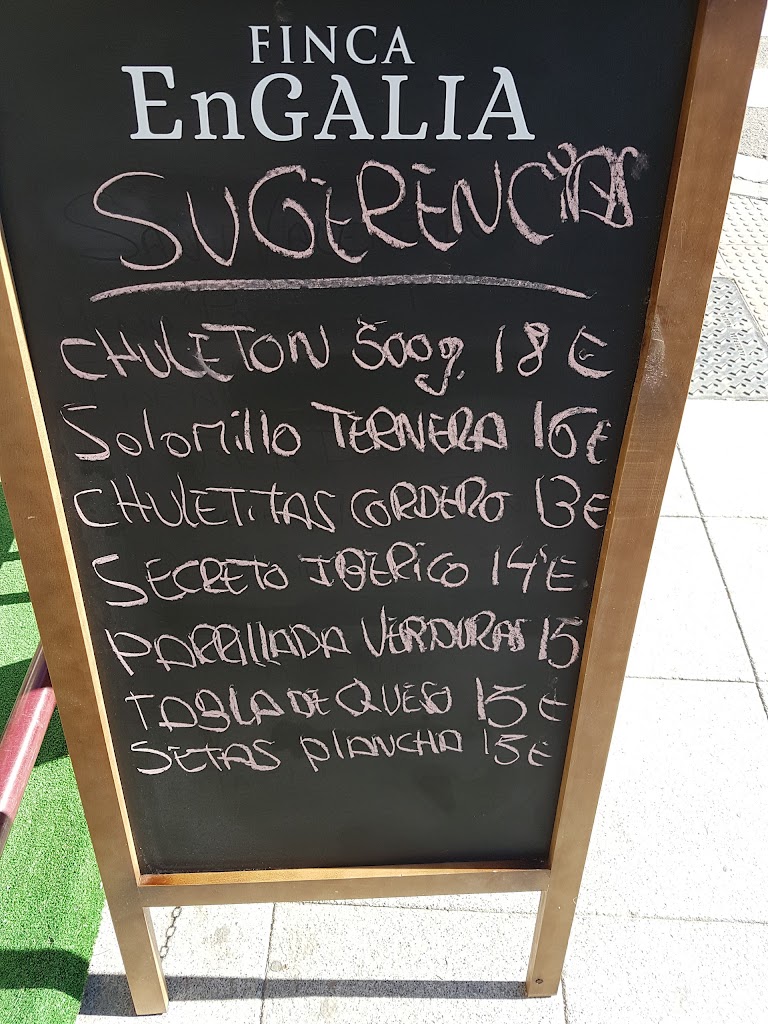 FINCA
EnGALIA
SUGERENCIAS
CHULETON 500g. 18 E
Solomillo TERNERA 16 E
CHULETITAS CORDERO 13 E
SECRETO IBERICO 14' E
PARRILLADA VERDURAS 15
TABLA DE QUESO 15 E
SETAS PLANCHA 15 E